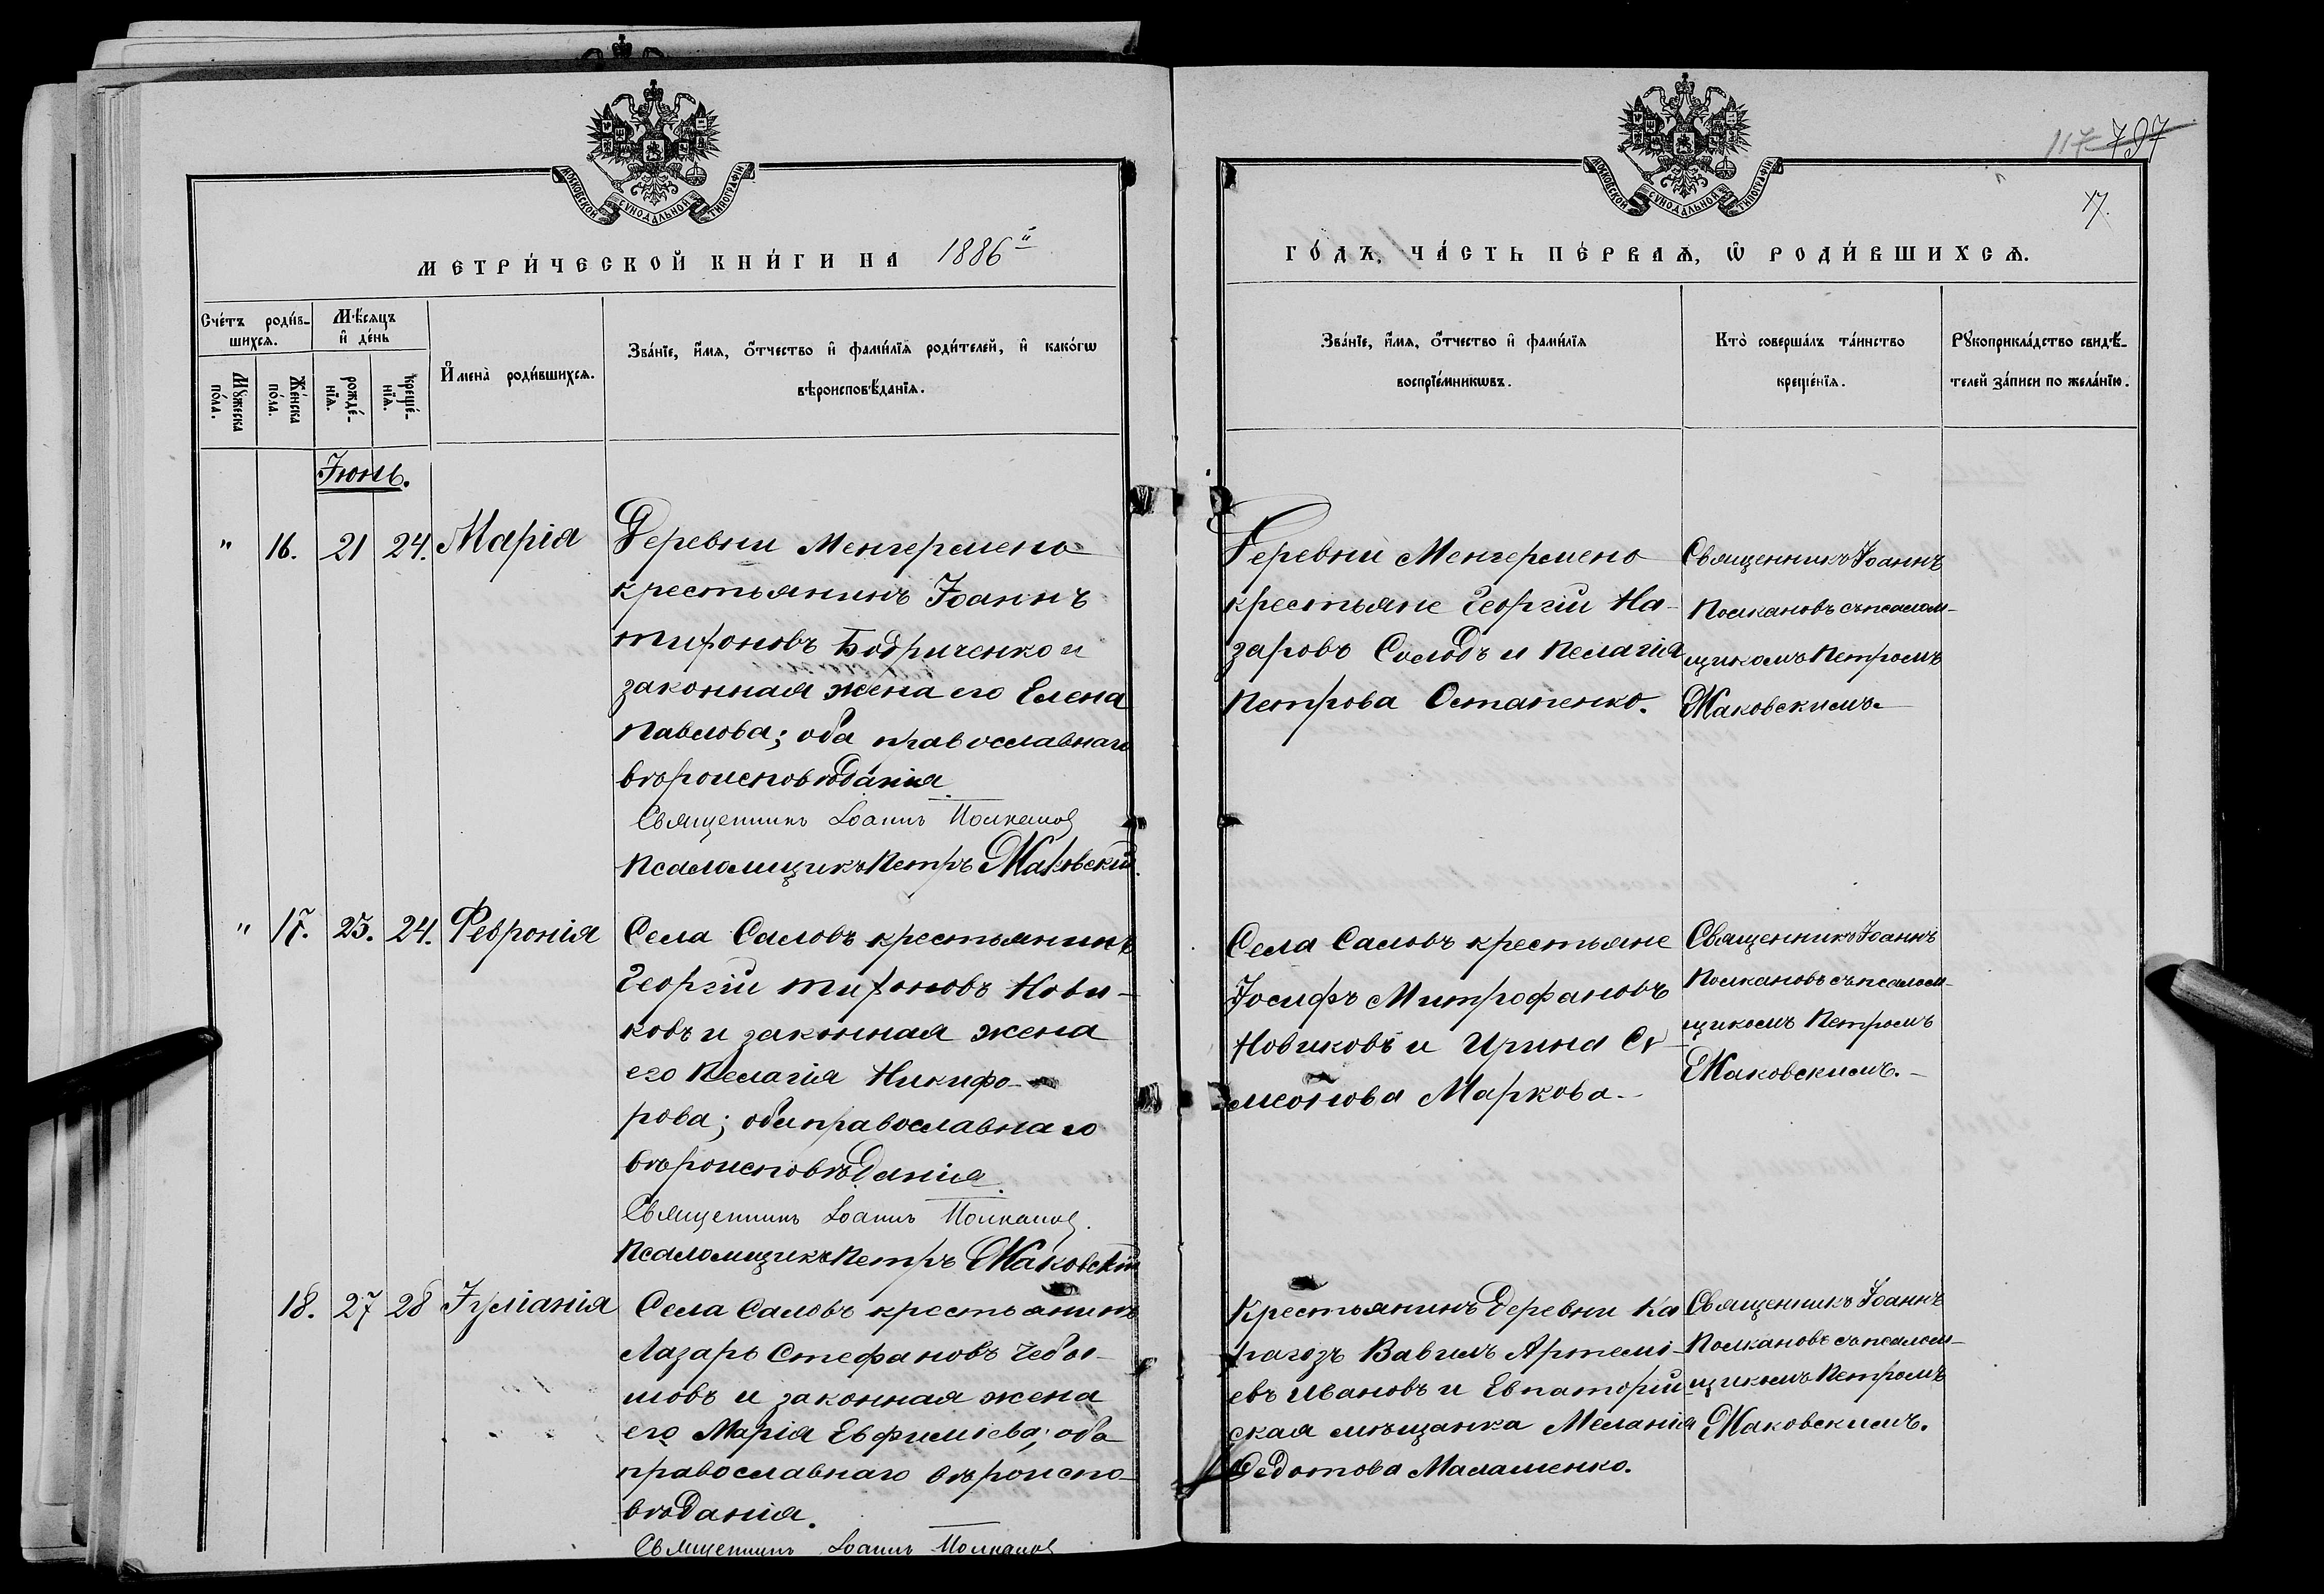 117 797
17.
МОСКОВСКОЙ СѴНОДАЛЬНОЙ ТИПОГРАФІИ
МОСКОВСКОЙ СѴНОДАЛЬНОЙ ТИПОГРАФІИ
МЕТРИ́ЧЕСКОЙ КНИ́ГИ НА 1886й
ГО́ДЪ, ЧА́СТЬ ПЕ́РВАѦ, Ѡ РОДИ́ВШИХСѦ.
Сче́тъ роди́в-
шихсѧ.
Мꙋ́жеска
по́ла.
Же́нска
по́ла.
Мѣ́сяцъ
и҆ де́нь
рожде́-
нїѧ.
креще́-
нїѧ.
И҆мена̀ роди́вшихсѧ.
Зва́нїе, и҆́мѧ, ѻ҆́тчество и҆ фами́лїѧ роди́телей, и҆ како́гѡ
вѣроисповѣ́данїѧ.
Зва́нїе, и҆́мѧ, ѻ҆́тчество и҆ фами́лїѧ
воспрїе́мникѡвъ.
Кто̀ соверша́лъ та́инство
креще́нїѧ.
Рꙋкоприкла́дство свидѣ́-
телей за́писи по жела́нїю.
Іюнь.
" 16. 21 24. Марія
Деревни Менгермено
крестьянинъ Іоаннъ
Тифоновъ Бодриченко и
законная жена его Елена
Павлова; оба православнаго
вѣроисповѣданія.
Священникъ Іоаннъ Полкановъ
Псаломщикъ Петръ Маковскій.
Деревни Менгермено
крестьяне Георгій На-
заровъ Солодъ и Пелагія
Петрова Остапенко.
Священникъ Іоаннъ
Полкановъ съ псалом-
щикомъ Петромъ
Маковскимъ.
" 17. 23. 24. Февронія
Села Саловъ крестьянинъ
Георгій Тифоновъ Нови-
ковъ и законная жена
его Пелагія Никифо-
рова; оба православнаго
вѣроисповѣданія.
Священникъ Іоаннъ Полкановъ.
Псаломщикъ Петръ Маковскій
Села Саловъ крестьяне
Іосифъ Митрофановъ
Новиковъ и Ирина Си-
меонова Маркова.
Священникъ Іоаннъ
Полкановъ съ псалом-
щикомъ Петромъ
Маковскимъ.
18. 27 28 Іуліанія
Села Саловъ крестьянинъ
Лазарь Стефановъ Чебы-
шовъ и законная жена
его Марія Евфиміева; оба
православнаго вѣроиспо-
вѣданія.
Священникъ Іоаннъ Полкановъ
Крестьянинъ деревни Ка
рагозъ Вавилъ Артемі-
евъ Ивановъ и Евпаторій
ская мѣщанка Меланія
Федотова Малашенко.
Священникъ Іоаннъ
Полкановъ съ псалом-
щикомъ Петромъ
Маковскимъ.